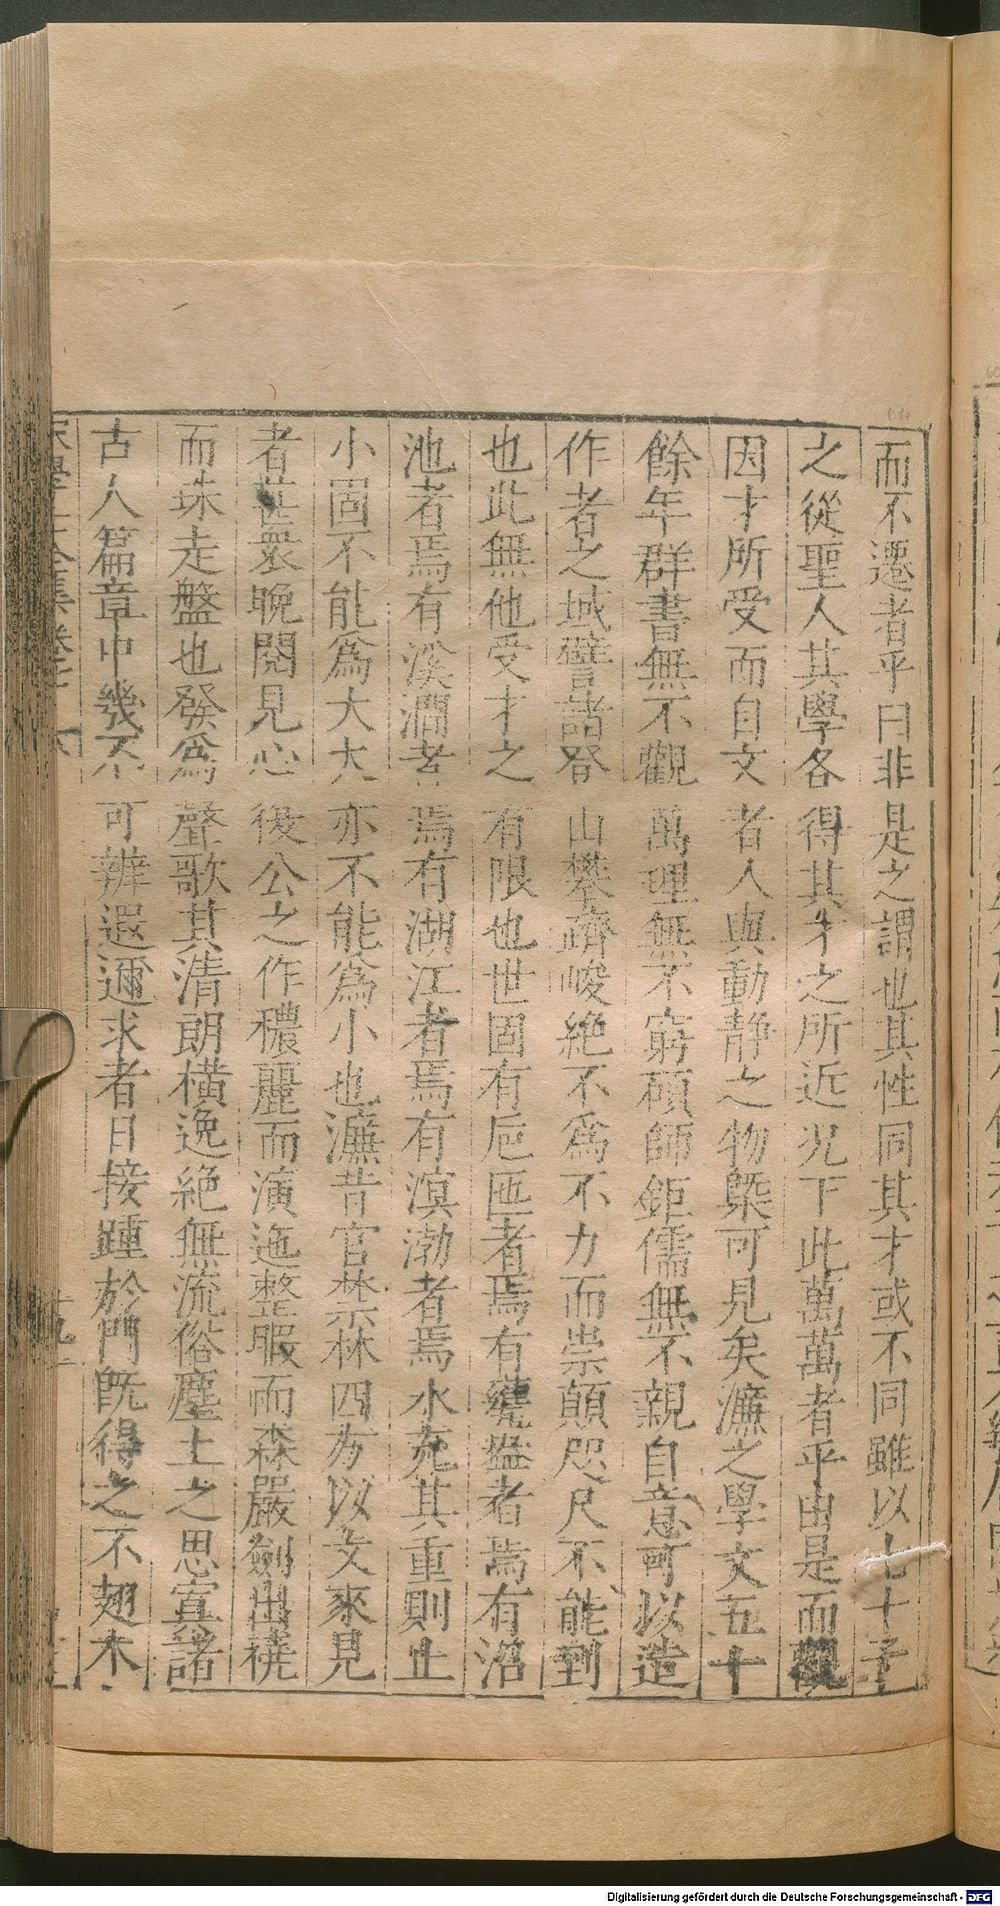 而不遷者乎曰非是之謂也其性同其才或不同雖以七十子
之從聖人其學各得其才之所近況下此萬萬者乎由是而觀
因才所受而自文者人與動靜之物槩可見矣濂之學文五十
餘年群書無不觀萬理無不窮碩師鉅儒無不親自意可以造
作者之域譬諸登山攀躋峻絶不爲不力而崇顛咫尺不能到
也此無他受才之有限也世固有巵匜者焉有甕盎者焉有沼
池者焉有溪澗者焉有湖江者焉有溟渤者焉水充其重則止
小固不能爲大大亦不能爲小也濂昔官禁林四方以文來見
者甚衆晚閱見心後公之作穠麗而演迤整暇而森嚴劒出襓
而珠走盤也發爲聲歌其清朗橫逸絶無流俗塵土之思寘諸
古人篇章中幾不可辨遐邇求者日接踵於門旣得之不翅木
宋學士全集卷
Digitalisierung gefördert durch die Deutsche Forschungsgemeinschaft - DFG